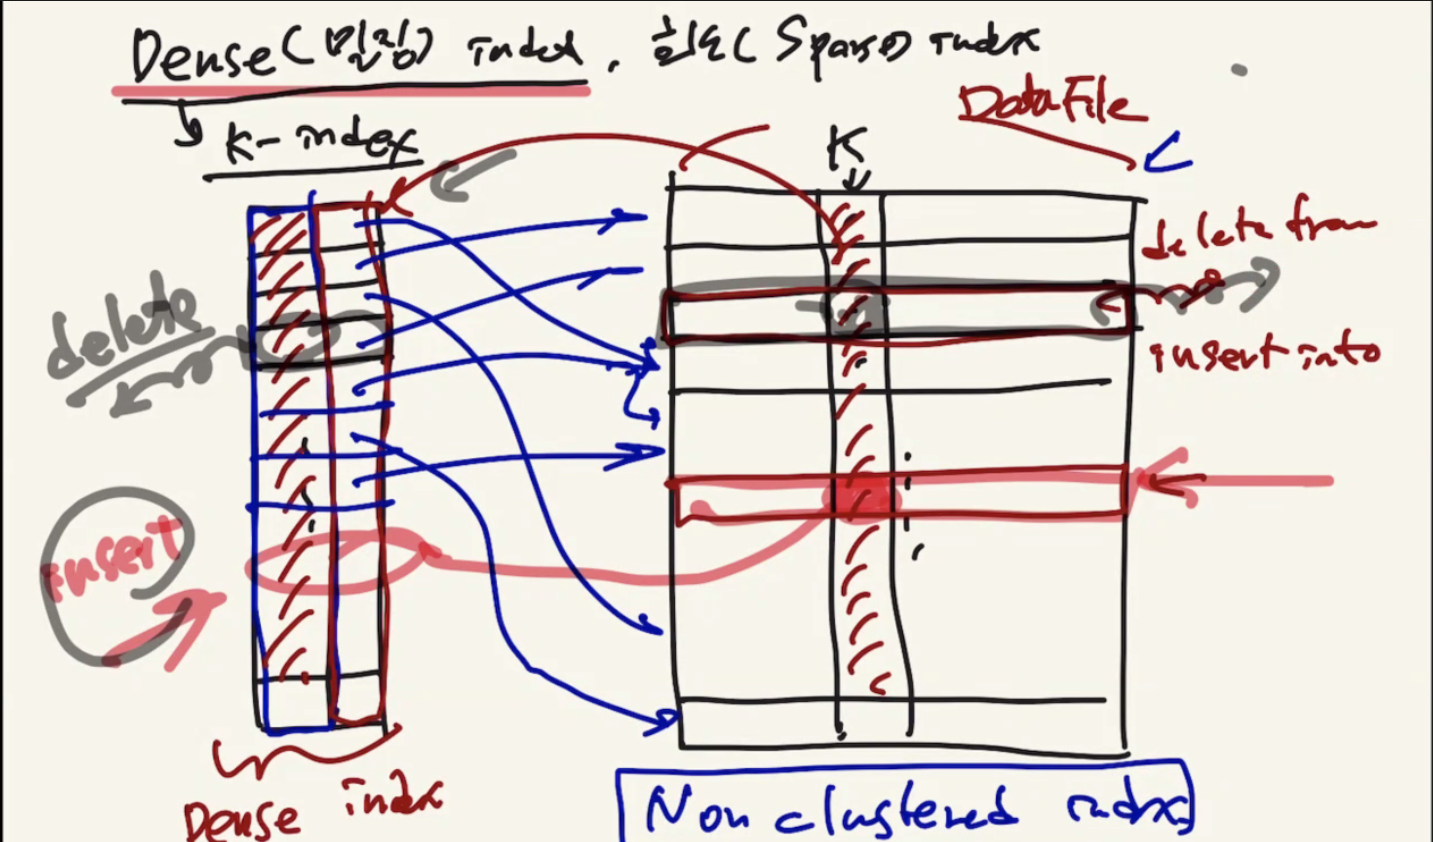 Dense(밀집) index, 희소(Sparse) index
Data File
K-index
K
delete from
insert into
delete
insert
Dense index
Non clustered index